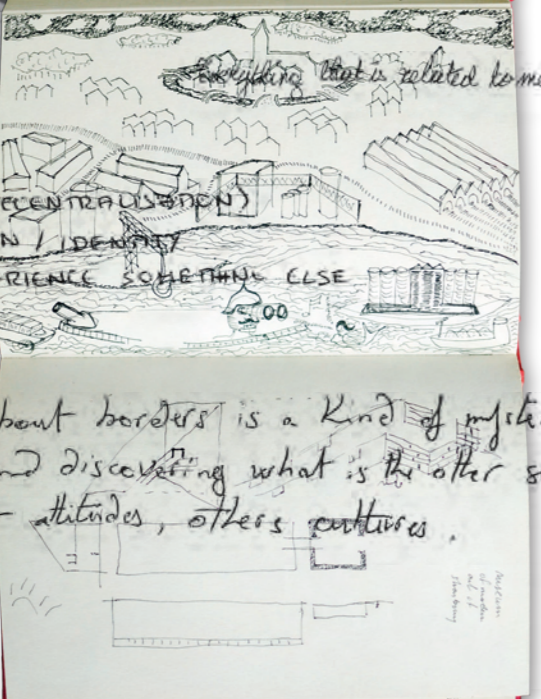 Everything that is related to me
ECENTRALISATION)
N / IDENTITY
RIENCE SOMETHING ELSE
bout borders is a kind of myste
nd discovering what is the other s
attitudes, others cultures.
museum
of modern
art of